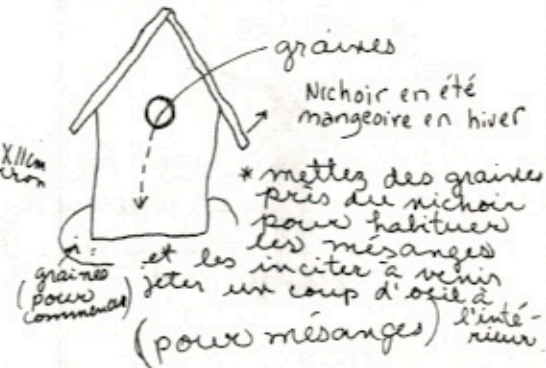 graines
Nichoir en été
mangeoire en hiver
X 11cm
* mettez des graines
près du nichoir
pour habituer
les mésanges
et les inciter à venir
jeter un coup d'oeil à
l'inté-
rieur
graines
(pour
commencer)
(pour mésanges)